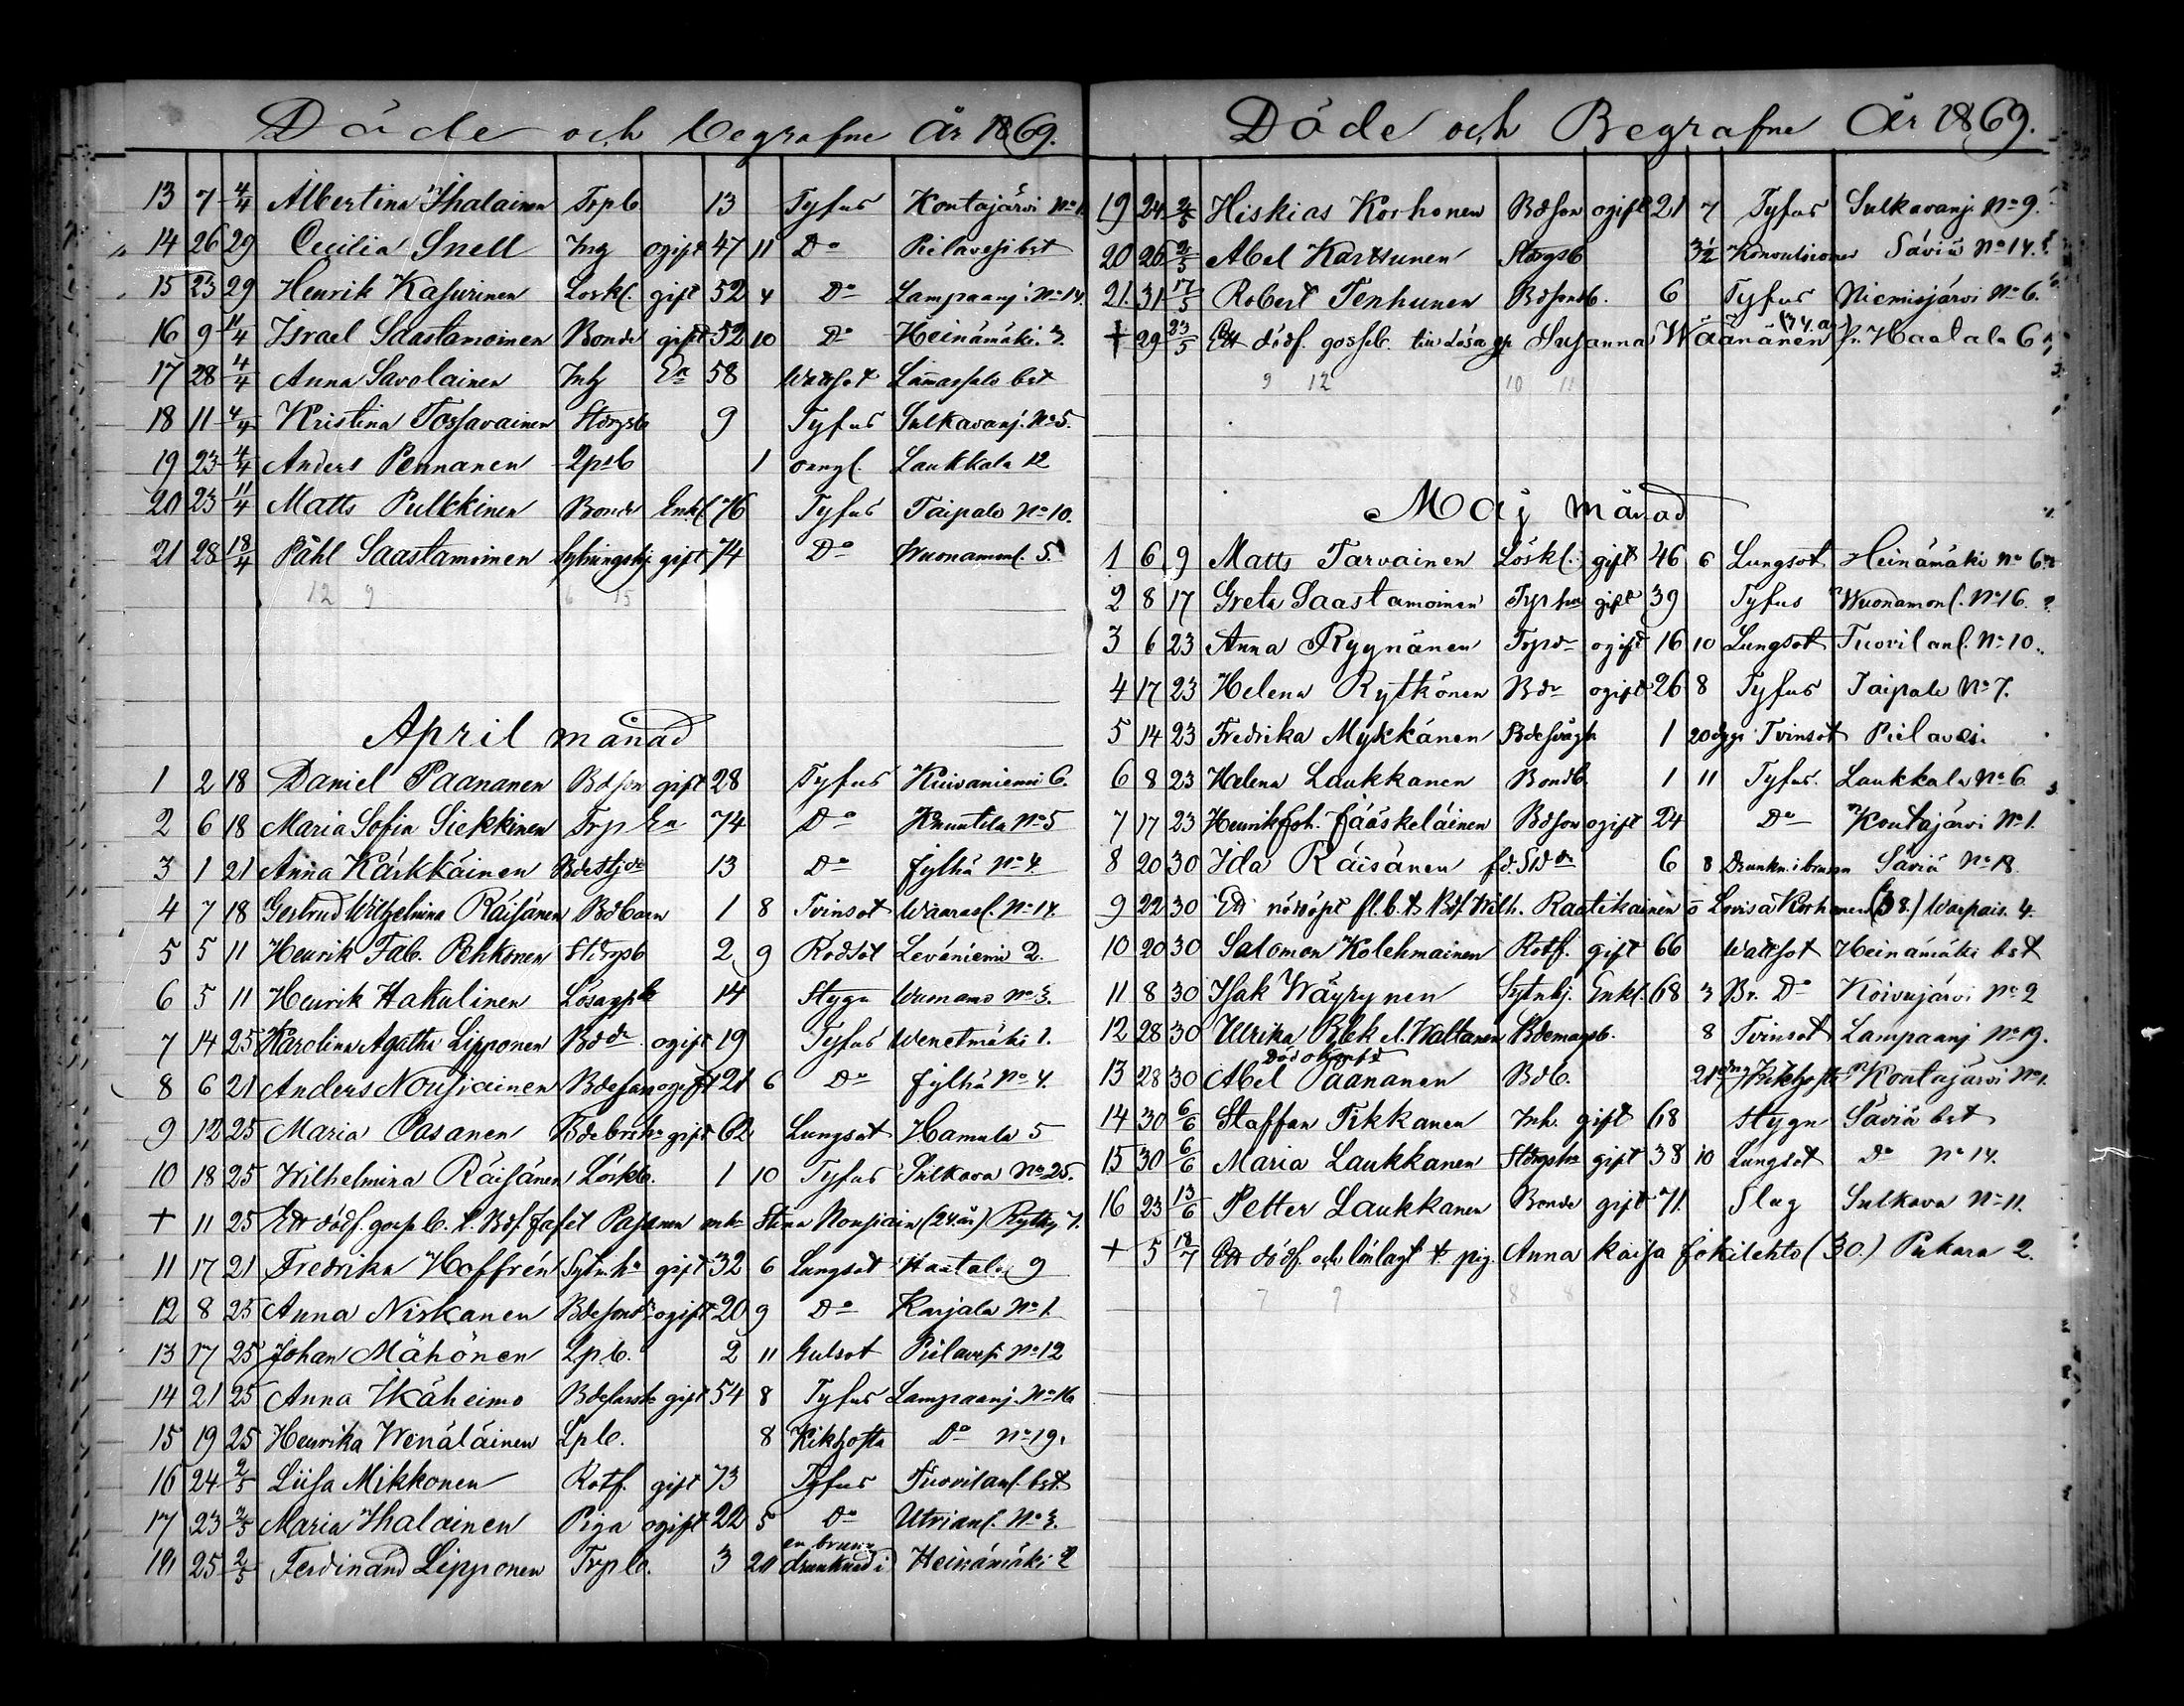 Döde och begrafne År 1869.
13 7 4/4 Albertina Ihalainen Trpb 13 Tyfus Koutajärvi No 1.
14 26 29 Cecilia Snell Ing ogift 47 11 Do Pielavesi bst
15 23 29 Henrik Kasurinen Loskl. gift 52 4 Do Lampaanj. No 14.
16 9 11/4 Israel Saastamoinen Bonde gift 52 10 Do Heinämäki 3.
17 28 4/4 Anna Savolainen Inh Ea 58 Wattsot Lam̄assalo bst
18 11 4/4 Kristina Tossavainen Stdrgsb 9 Tyfus Sulkavanj. No 5.
19 23 4/4 Anders Pennanen Lpsb 1 oangf. Laukkala 12
20 23 11/4 Matts Pulkkinen Bonde Enkl 76 Tyfus Taipale No 10.
21 28 18/4 Påhl Saastamoinen Sytningshj gift 74 Do Wuonamonl. 5.
12 9 6 15
April månad
1 2 18 Daniel Paananen Bdson gift 28 Tyfus Kuivaniemi 6.
2 6 18 Maria Sofia Siekkinen Trp Ea 74 Do Knuutila No 5
3 1 21 Anna Kärkkäinen Bdestjdr 13 Do Jylhä No 4
4 7 18 Gertrud Wilhelmina Räisänen Bdbarn 1 8 Tvinsot Waarasl. No 14.
5 5 11 Henrik Fab. Pehkonen Stdrgsb 2 9 Rödsot Leväniemi 2.
6 5 11 Henrik Hakulinen Lösagpb 14 Stygn No 3.
7 14 25 Karolina Agatha Lipponen Bddr ogift 19 Tyfus Wenetmäki 1.
8 6 21 Anders Nousiainen Bdeson ogift 21 6 Do Jylhä No 4.
9 12 25 Maria Pasanen Bdebrorh. gift 62 Lungsot Hamula 5
10 18 25 Wilhelmina Räisänen Löskb. 1 10 Tyfus Sulkava No 25.
+ 11 25 Ett dödf. gossb. t. Bdf. Jafet Pasanen o. h. Stina Nousiain (24 år) Rytky 7.
11 17 21 Fredrika Hoffrén Sytn.ha gift 32 6 Lungsot Haatala 9
12 8 25 Anna Niskanen Bdesondr ogift 20 9 Do Karjala No 1.
13 17 25 Johan Mähönen Lpb. 2 11 Gulsot Pielavesi No 12
14 21 25 Anna Ikäheimo gift 54 8 Tyfus Lampaanj. No 16
15 19 25 Henrika Wenäläinen Lpb. 8 Kikhosta Do No 19.
16 24 2/5 Liisa Mikkonen Rotf. gift 73 Tyfus Tuovilanl. bst.
17 23 2/5 Maria Ihalainen Piga ogift 22 5 Do Utrianl. No 3.
18 25 2/5 Ferdinand Lipponen Trpb. 3 20 drunknad i en brunn Heinämäki 2
Döde och Begrafne År 1869.
19 24 2/5 Hiskias Korhonen Bdson ogift 21 7 Tyfus Sulkavanj. No 9.
20 26 2/5 Abel Karttunen Stdrgsb 3 1/2 Konvulsioner Säviä No 14.
21. 31 17/5 Robert Tenhunen Bdsonb. 6 Tyfus Niemisjärvi No 6.
+ 29 23/5 Ett dödf. gossb. till lösa qp Susanna Wäänänen (34 år) fr. Haatala 6
9 12 10 11
Maj månad
1 6 9 Matts Tarvainen Löskl. gift 46 6 Lungsot Heinämäki No 6
2 8 17 Greta Saastamoinen Trp hu gift 39 Tyfus Wuonamonl. No 16.
3 6 23 Anna Ryynänen Trpdr ogift 16 10 Lungsot Tuovilanl. No 10.
4 17 23 Helena Rytkönen Bdr ogift 26 8 Tyfus Taipale No 7.
5 14 23 Fredrika Mykkänen 1 20 dgr Tvinsot Pielavesi
6 8 23 Helena Laukkanen Bondb. 1 11 Tyfus. Laukkala No 6
7 17 23 Henrik Joh. Jääskeläinen Bdson ogift 24 Do Koutajärvi No 1.
8 20 30 Ida Räisänen fd. Stddr 6 8 Drunkn. i brunn Säviä No 18.
9 22 30 Ett nödöpt fl.b. t. Bdf. Wilh. Raatikainen o Lovisa Korhonen (38.) Warpais. 4.
10 20 30 Salomon Kolehmainen Rotf. gift 66 Wattsot Heinämäki bst
11 8 30 Isak Wäyrynen Sytnhj. Enkl. 68 3 Br. Do Koivujärvi No 2
12 28 30 Ulrika Rebek el. Waltanen Bdemagsb. 8 Tvinsot Lampaanj No 19.
13 28 30 Abel Paananen Bdb. 21 dgr Kikhosta Koutajärvi No 1.
14 30 6/6 Staffan Tikkanen Inh. gift 68 Stygn Säviä bst
15 30 6/6 Maria Laukkanen Stdrgshu gift 38 10 Lungsot Do No 14.
16 23 13/6 Petter Laukkanen Bonde gift 71. Slag Sulkava No 11.
+ 5 18/7 Ett dödf. och lönlagt t. pig. Anna Kaisa Jokilehto (30.) Pukara 2.
7 9 8 8